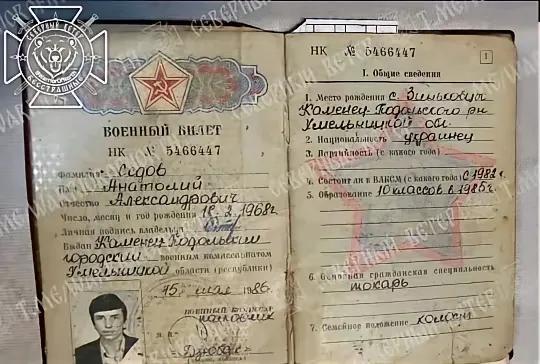 СЕВЕРНЫЙ ВЕТЕР
БЕССТРАШНЫЕ
ВОЕННЫЙ БИЛЕТ
НК № 5466447
Фамилия Седов
Анатолий
Отчество Александрович
Число, месяц и год рождения 18.2.1968г
Личная подпись владельца
Выдан Каменец-Подольским
городским военным комиссариатом
Хмельницкой области (республики)
15 мая 1986
НК № 5466447
1
I. Общие сведения
1. Место рождения с. Зиньковцы
Каменец-Подольского рн
Хмельницкой обл.
2. Национальность украинец
3. Партийность (с какого года)
4. Состоит ли в ВЛКСМ (с какого года) с 1982г.
5. Образование 10 классов в 1985г.
6. Основная гражданская специальность
токарь
7. Семейное положение холост